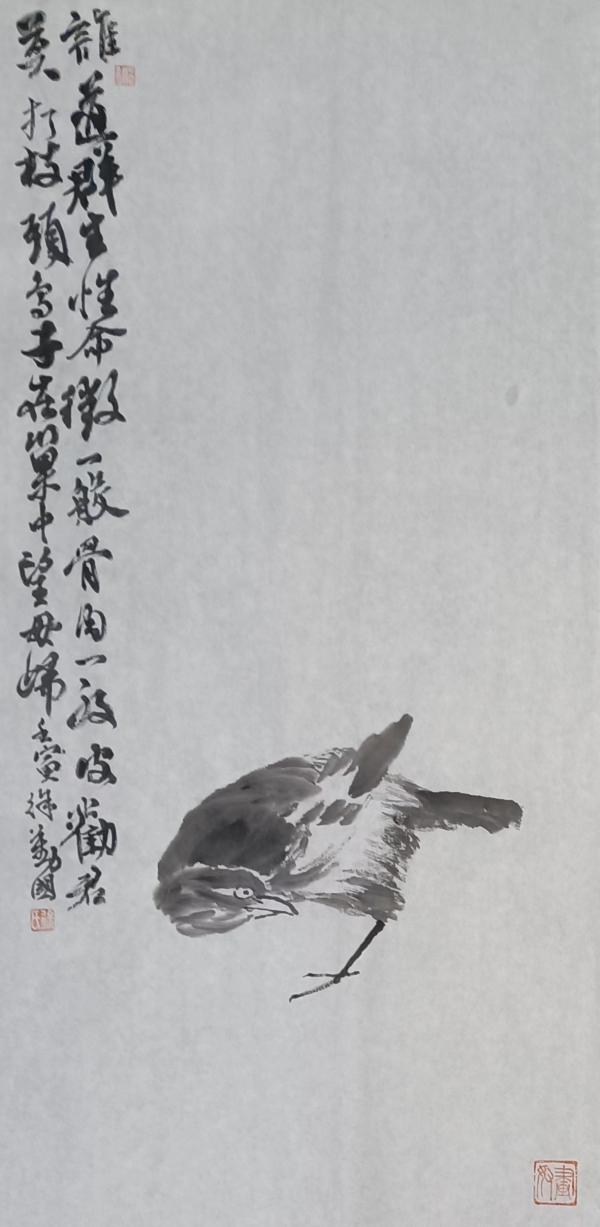 誰道群生性命微一般骨肉一般皮勸君
莫打枝頭鳥子在巢中望母歸
壬寅徐國
畫